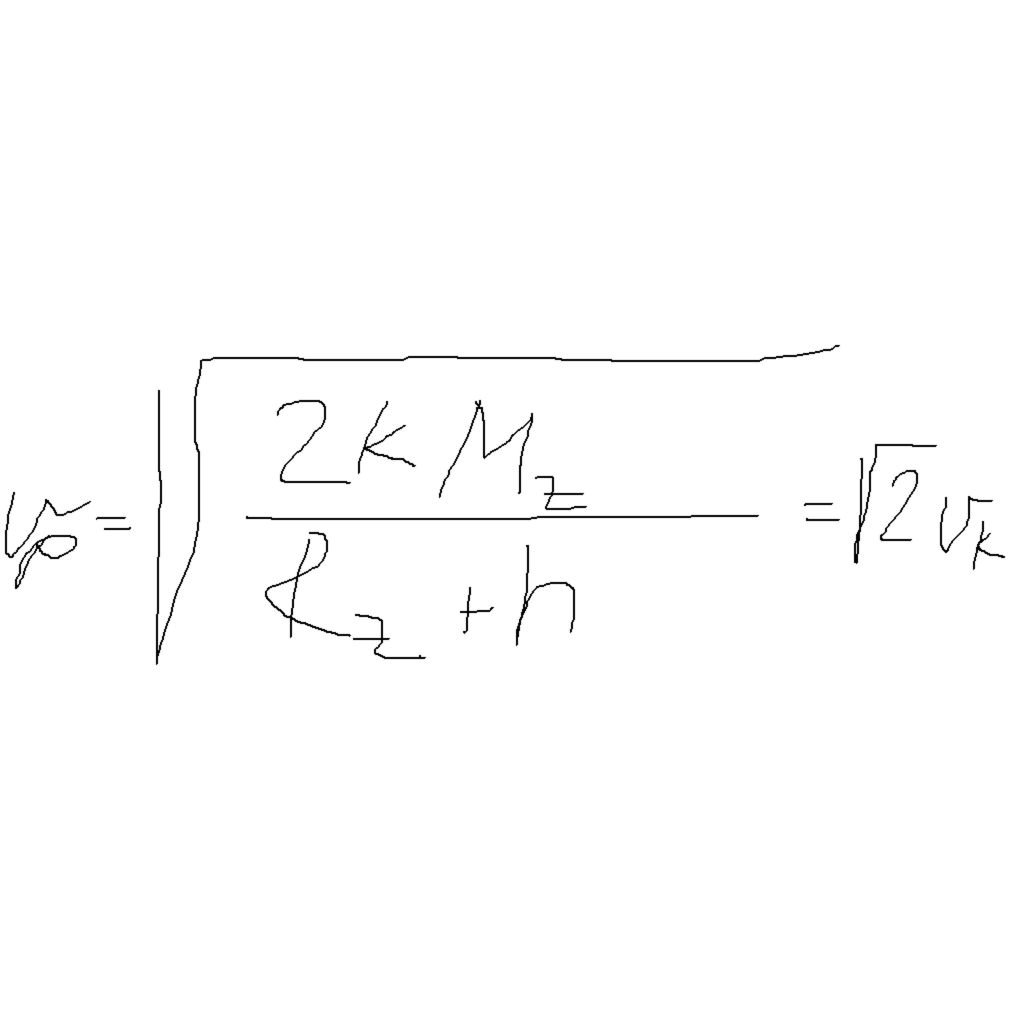 v_p = √((2κM_z)/(R_z + h)) = √2 v_k